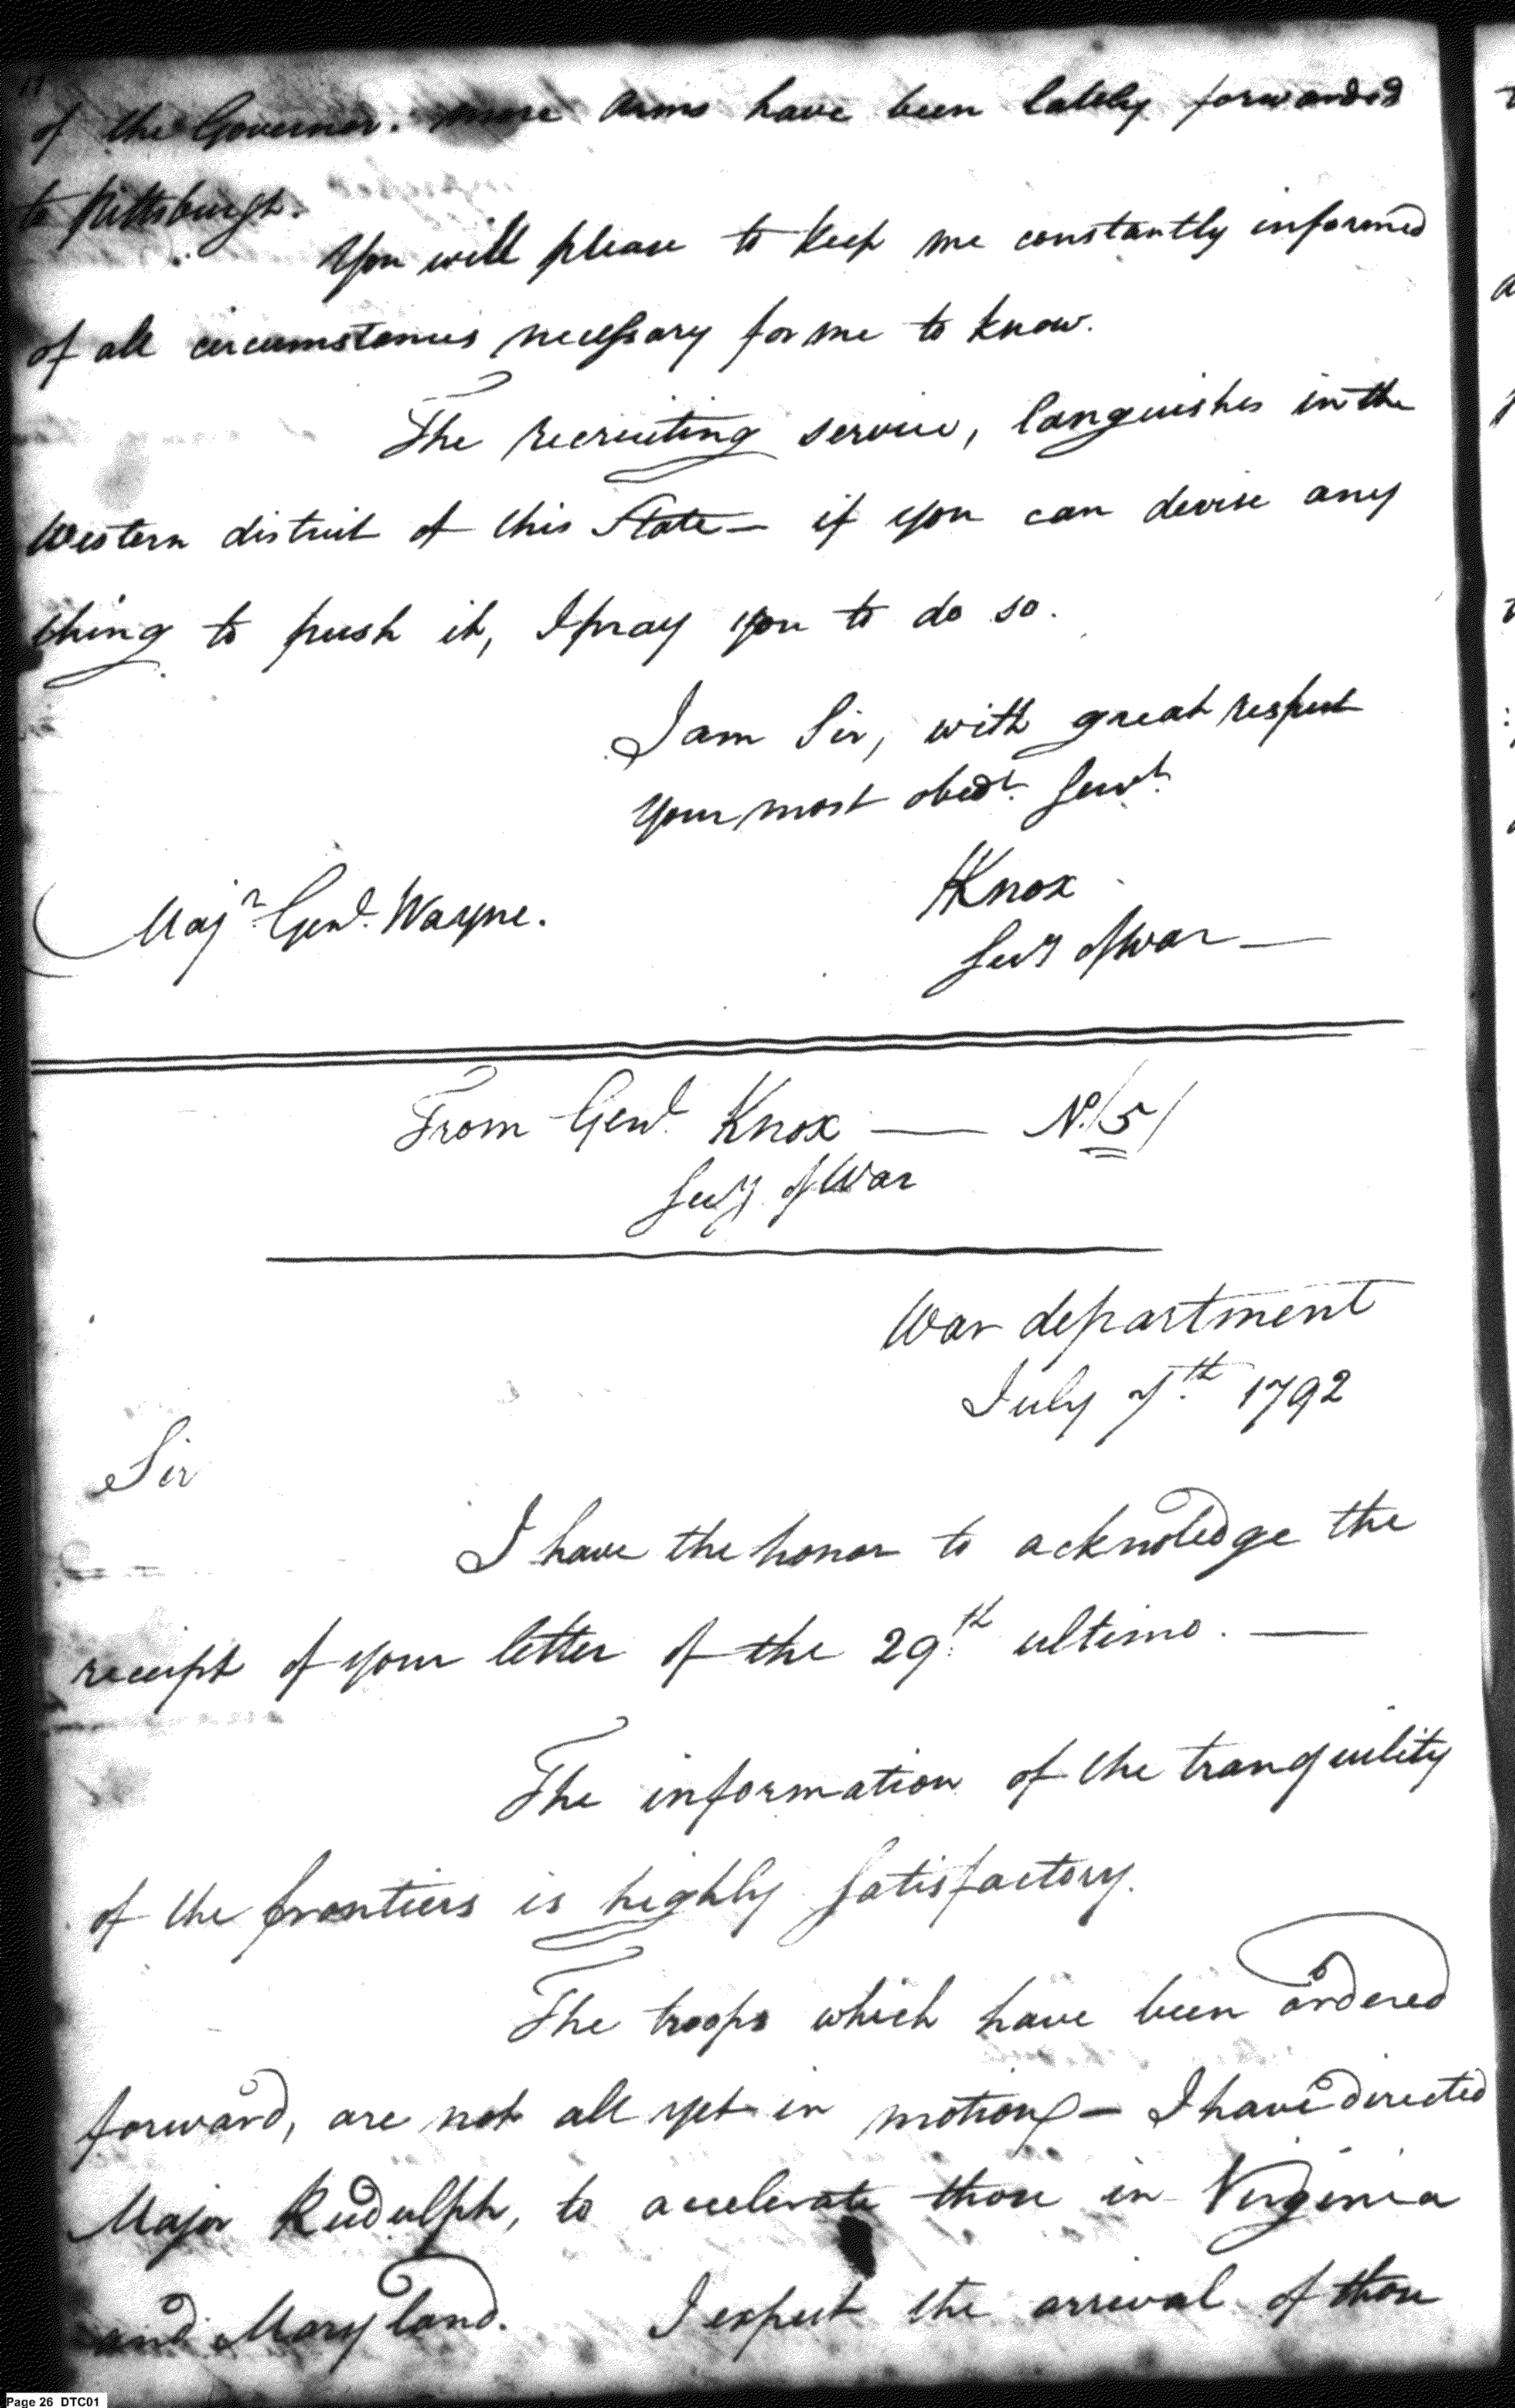 11
of the Governor. more arms have been lately forwarded
to Pittsburgh.
You will please to keep me constantly informed
of all circumstances necessary for me to know.
The recruiting service, languishes in the
Western district of this State — if you can devise any
thing to push it, I pray you to do so.
I am Sir, with great respect
Your most obedt. Servt.
HKnox
Secy of War —
Majr. Genl. Wayne.
From Genl. Knox — No. 5
Secy. of War
War department
July 7th 1792
Sir
I have the honor to acknoledge the
receipt of your letter of the 29th ultimo. —
The information of the tranquility
of the frontiers is highly satisfactory.
The troops which have been ordered
forward, are not all yet in motion — I have directed
Major Rudulph, to accelerate those in Virginia
and Maryland. I expect the arrival of those
Page 26 DTC01